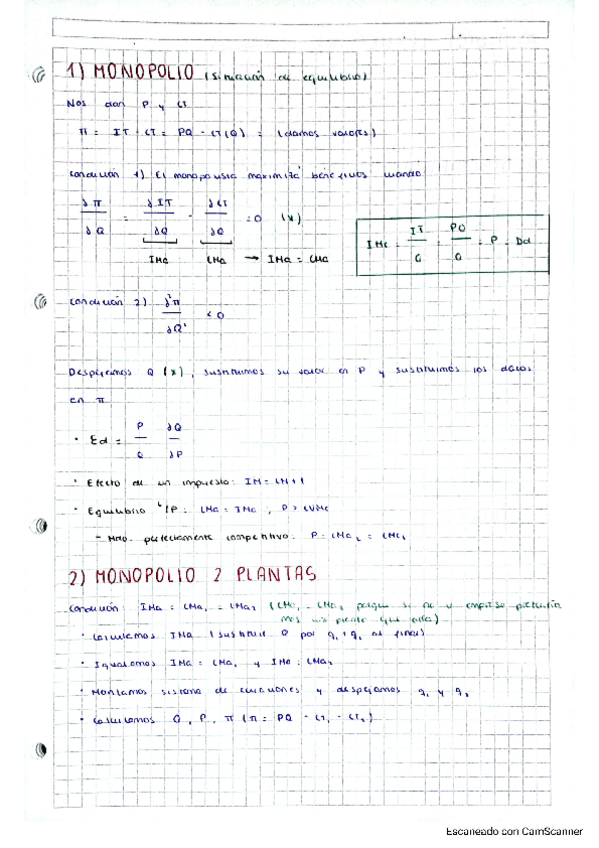 1) MONOPOLIO (situación de equilibrio)
Nos dan P y CT
π = IT - CT = PQ - CT(Q) = (damos valores)
Condición 1) El monopolista maximiza beneficios cuando
∂π/∂Q = ∂IT/∂Q - ∂CT/∂Q = 0 (x)
IMa CMa → IMa = CMa
IMe = IT/Q = PQ/Q = P = Dd
Condición 2) ∂²π/∂Q² < 0
Despejamos Q (x), sustituimos su valor en P y sustituimos los datos
en π
· Ed = P/Q ∂Q/∂P
· Efecto de un impuesto: IM = CM + t
· Equilibrio c/p: CMa = IMa, P > CVMe
- Mdo. perfectamente competitivo: P = CMa, = CMe,
2) MONOPOLIO 2 PLANTAS
Condición: IMa = CMa₁ = CMa₂ (CMa₁ = CMa₂ porque si no el empresa
mos una planta que otra)
· Calculamos IMa (sustituir Q por q₁+q₂ al final)
· Igualamos IMa = CMa₁ y IMa = CMa₂
· Montamos sistema de ecuaciones y despejamos q₁ y q₂
· Calculamos Q, P, π (π = PQ - CT₁ - CT₂)
Escaneado con CamScanner